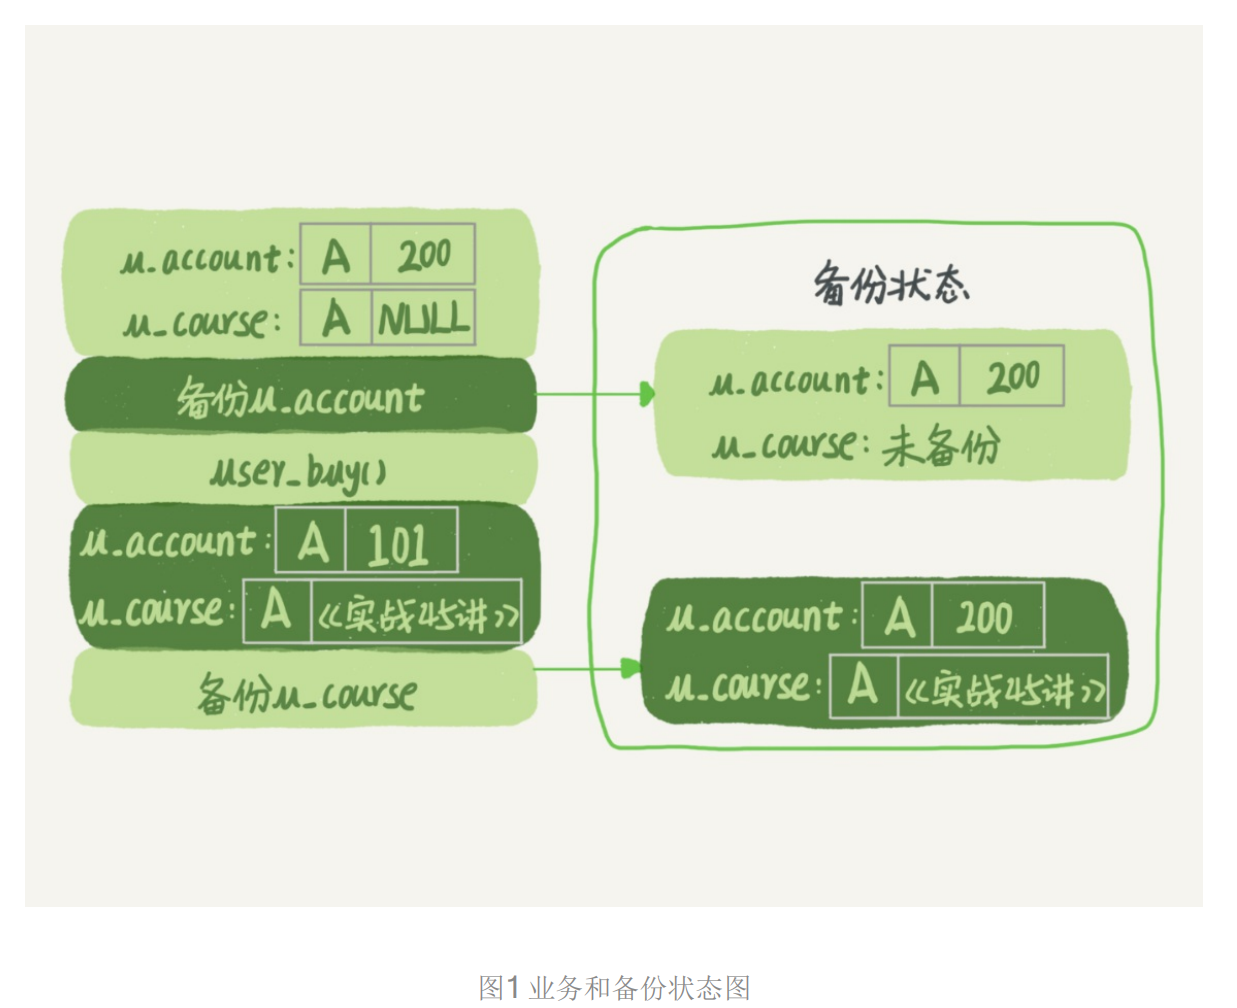 u_account: A 200
u_course: A NULL
备份u_account
user_buy()
u_account: A 101
u_course: A 《实战45讲》
备份u_course
备份状态
u_account: A 200
u_course: 未备份
u_account: A 200
u_course: A 《实战45讲》
图1 业务和备份状态图